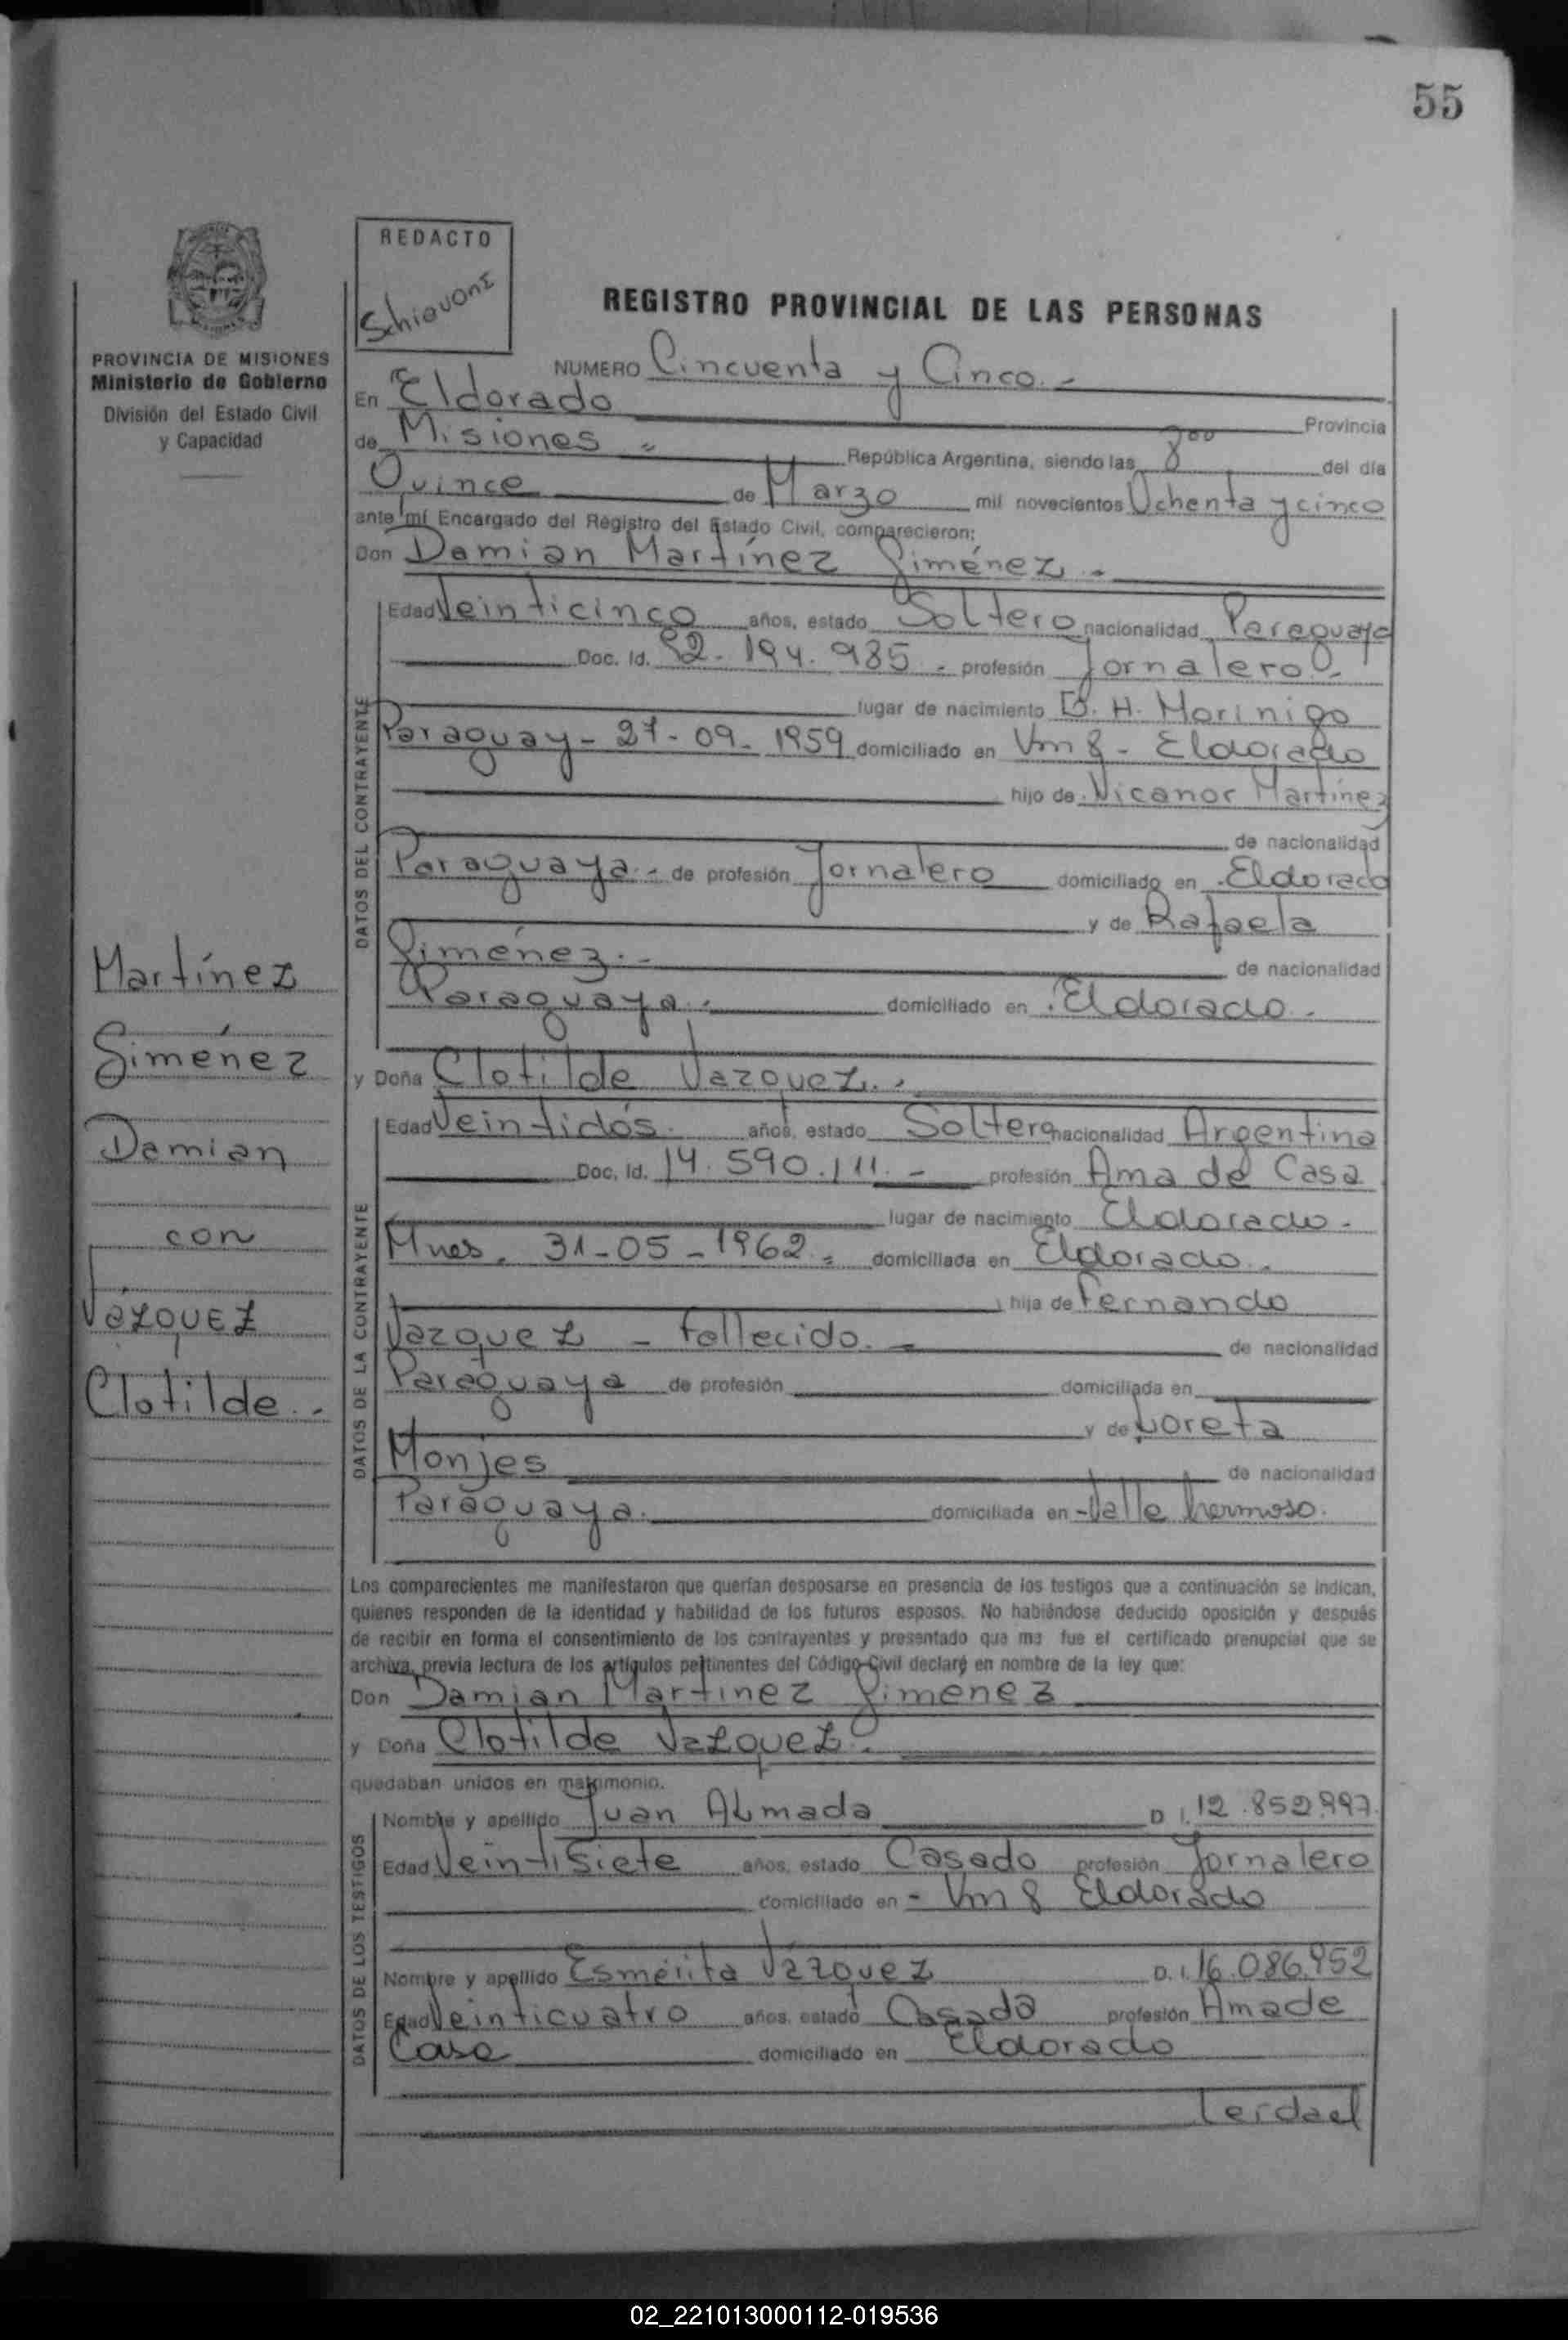 55
REDACTO
Schiavoni
PROVINCIA DE MISIONES
Ministerio de Gobierno
División del Estado Civil
y Capacidad
REGISTRO PROVINCIAL DE LAS PERSONAS
NUMERO Cincuenta y Cinco.-
En Eldorado Provincia
de Misiones República Argentina, siendo las 8⁰⁰ del día
Quince de Marzo mil novecientos Ochenta y cinco
ante mí Encargado del Registro del Estado Civil, comparecieron:
Don Damian Martínez Giménez.-
Martínez
Giménez
Damian
con
Vázquez
Clotilde.-
DATOS DEL CONTRAYENTE
Edad Veinticinco años, estado Soltero nacionalidad Paraguaya
Doc. Id. 92.194.985.- profesión Jornalero.-
lugar de nacimiento D. H. Morinigo
Paraguay - 27-09-1959 domiciliado en Vm 8 - Eldorado
hijo de Nicanor Martínez
de nacionalidad
Paraguaya.- de profesión Jornalero domiciliado en Eldorado
y de Rafaela
Giménez.- de nacionalidad
Paraguaya.- domiciliado en Eldorado.-
y Doña Clotilde Vázquez.-
DATOS DE LA CONTRAYENTE
Edad Veintidós. años, estado Soltera nacionalidad Argentina
Doc. Id. 14.590.111.- profesión Ama de Casa
lugar de nacimiento Eldorado.-
Mnes. 31-05-1962.- domiciliada en Eldorado.-
hija de Fernando
Vazquez - Fallecido.- de nacionalidad
Paraguaya de profesión domiciliada en
y de Loreta
Monjes de nacionalidad
Paraguaya. domiciliada en -Valle hermoso.
Los comparecientes me manifestaron que querían desposarse en presencia de los testigos que a continuación se indican,
quienes responden de la identidad y habilidad de los futuros esposos. No habiéndose deducido oposición y después
de recibir en forma el consentimiento de los contrayentes y presentado que me fue el certificado prenupcial que se
archiva, previa lectura de los artículos pertinentes del Código Civil declaré en nombre de la ley que:
Don Damian Martinez Gimenez
y Doña Clotilde Vazquez.-
quedaban unidos en matrimonio.
DATOS DE LOS TESTIGOS
Nombre y apellido Juan Almada D. I. 12.852.997.
Edad Veintisiete años, estado Casado profesión Jornalero
domiciliado en - Vm 8 Eldorado
Nombre y apellido Esmérita Vázquez D. I. 16.086.952
Edad Veinticuatro años, estado Casada profesión Ama de
Casa domiciliado en Eldorado
02_221013000112-019536